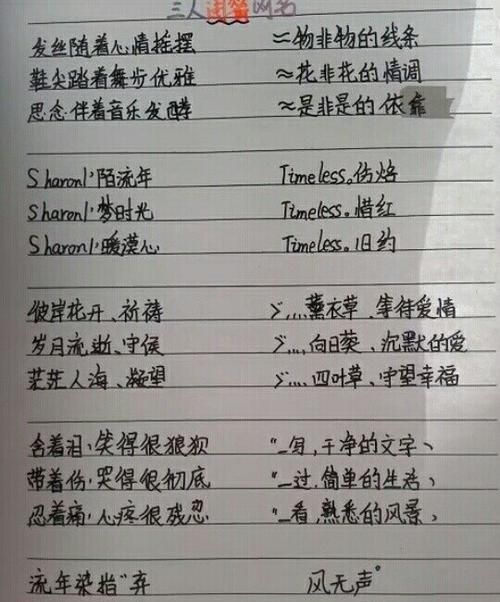 三人闺蜜网名
发丝随着心情摇摆 ≈物非物的线条
鞋尖踏着舞步优雅 ≈花非花的情调
思念伴着音乐发酵 ≈是非是的依靠
Sharonl丶陌流年 Timeless。伤焰
Sharonl丶梦时光 Timeless。惜红
Sharonl丶暖漠心 Timeless。旧约
彼岸花开、祈祷 ゞ....薰衣草、等待爱情
岁月流逝、守侯 ゞ....向日葵、沉默的爱
茫茫人海、凝望 ゞ....四叶草、守望幸福
含着泪丶笑得很狼狈 "_写,干净的文字丶
带着伤丶哭得很彻底 "_过,简单的生活丶
忍着痛丶心疼很残忍 "_看,熟悉的风景丶
流年染指"弃 风无声°